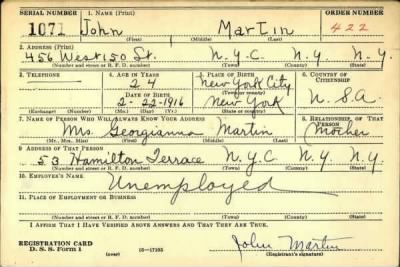 SERIAL NUMBER 1. NAME (Print) ORDER NUMBER
1071 John Martin 422
(First) (Middle) (Last)
2. ADDRESS (Print)
456 West 150 St. N.Y.C N.Y. N.Y.
(Number and street or R. F. D. number) (Town) (County) (State)
3. TELEPHONE 4. AGE IN YEARS 5. PLACE OF BIRTH 6. COUNTRY OF CITIZENSHIP
24 New York City
DATE OF BIRTH (Town or county)
2-22-1916 New York U.S.A.
(Exchange) (Number) (Mo.) (Day) (Yr.) (State or country)
7. NAME OF PERSON WHO WILL ALWAYS KNOW YOUR ADDRESS 8. RELATIONSHIP OF THAT PERSON
Mrs. Georgianna Martin Mother
(Mr., Mrs., Miss) (First) (Middle) (Last)
9. ADDRESS OF THAT PERSON
53 Hamilton Terrace N.Y.C N.Y. N.Y.
(Number and street or R. F. D. number) (Town) (County) (State)
10. EMPLOYER'S NAME
Unemployed
11. PLACE OF EMPLOYMENT OR BUSINESS
(Number and street or R. F. D. number) (Town) (County) (State)
I AFFIRM THAT I HAVE VERIFIED ABOVE ANSWERS AND THAT THEY ARE TRUE.
REGISTRATION CARD John Martin
D. S. S. Form 1 (over) 16—17105 (Registrant's signature)